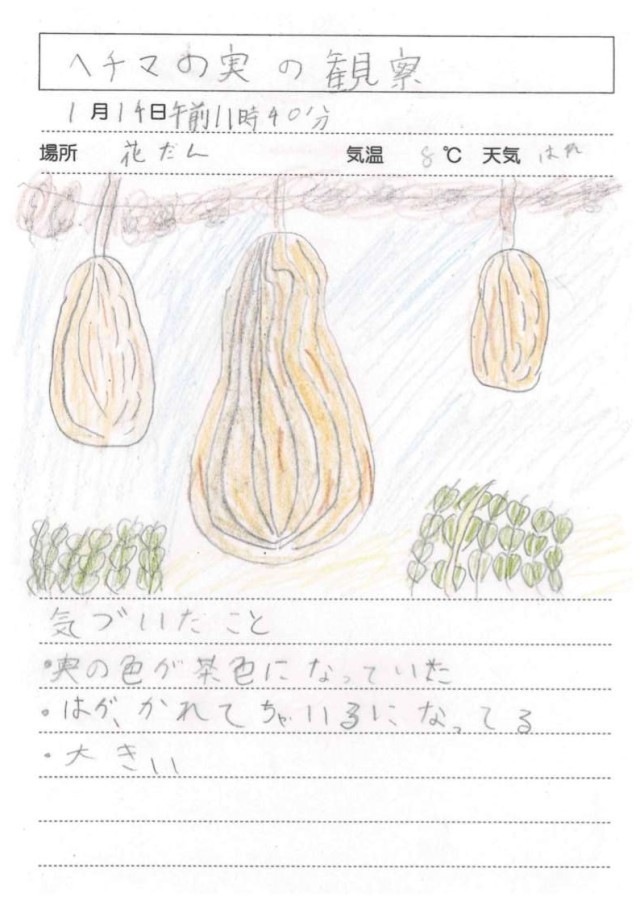 ヘチマの実の観察
1月14日午前11時40分
場所 花だん 気温 8℃ 天気 はれ
気づいたこと
•実の色が茶色になっていた
•はが、かれてちゃいろになってる
•大きい